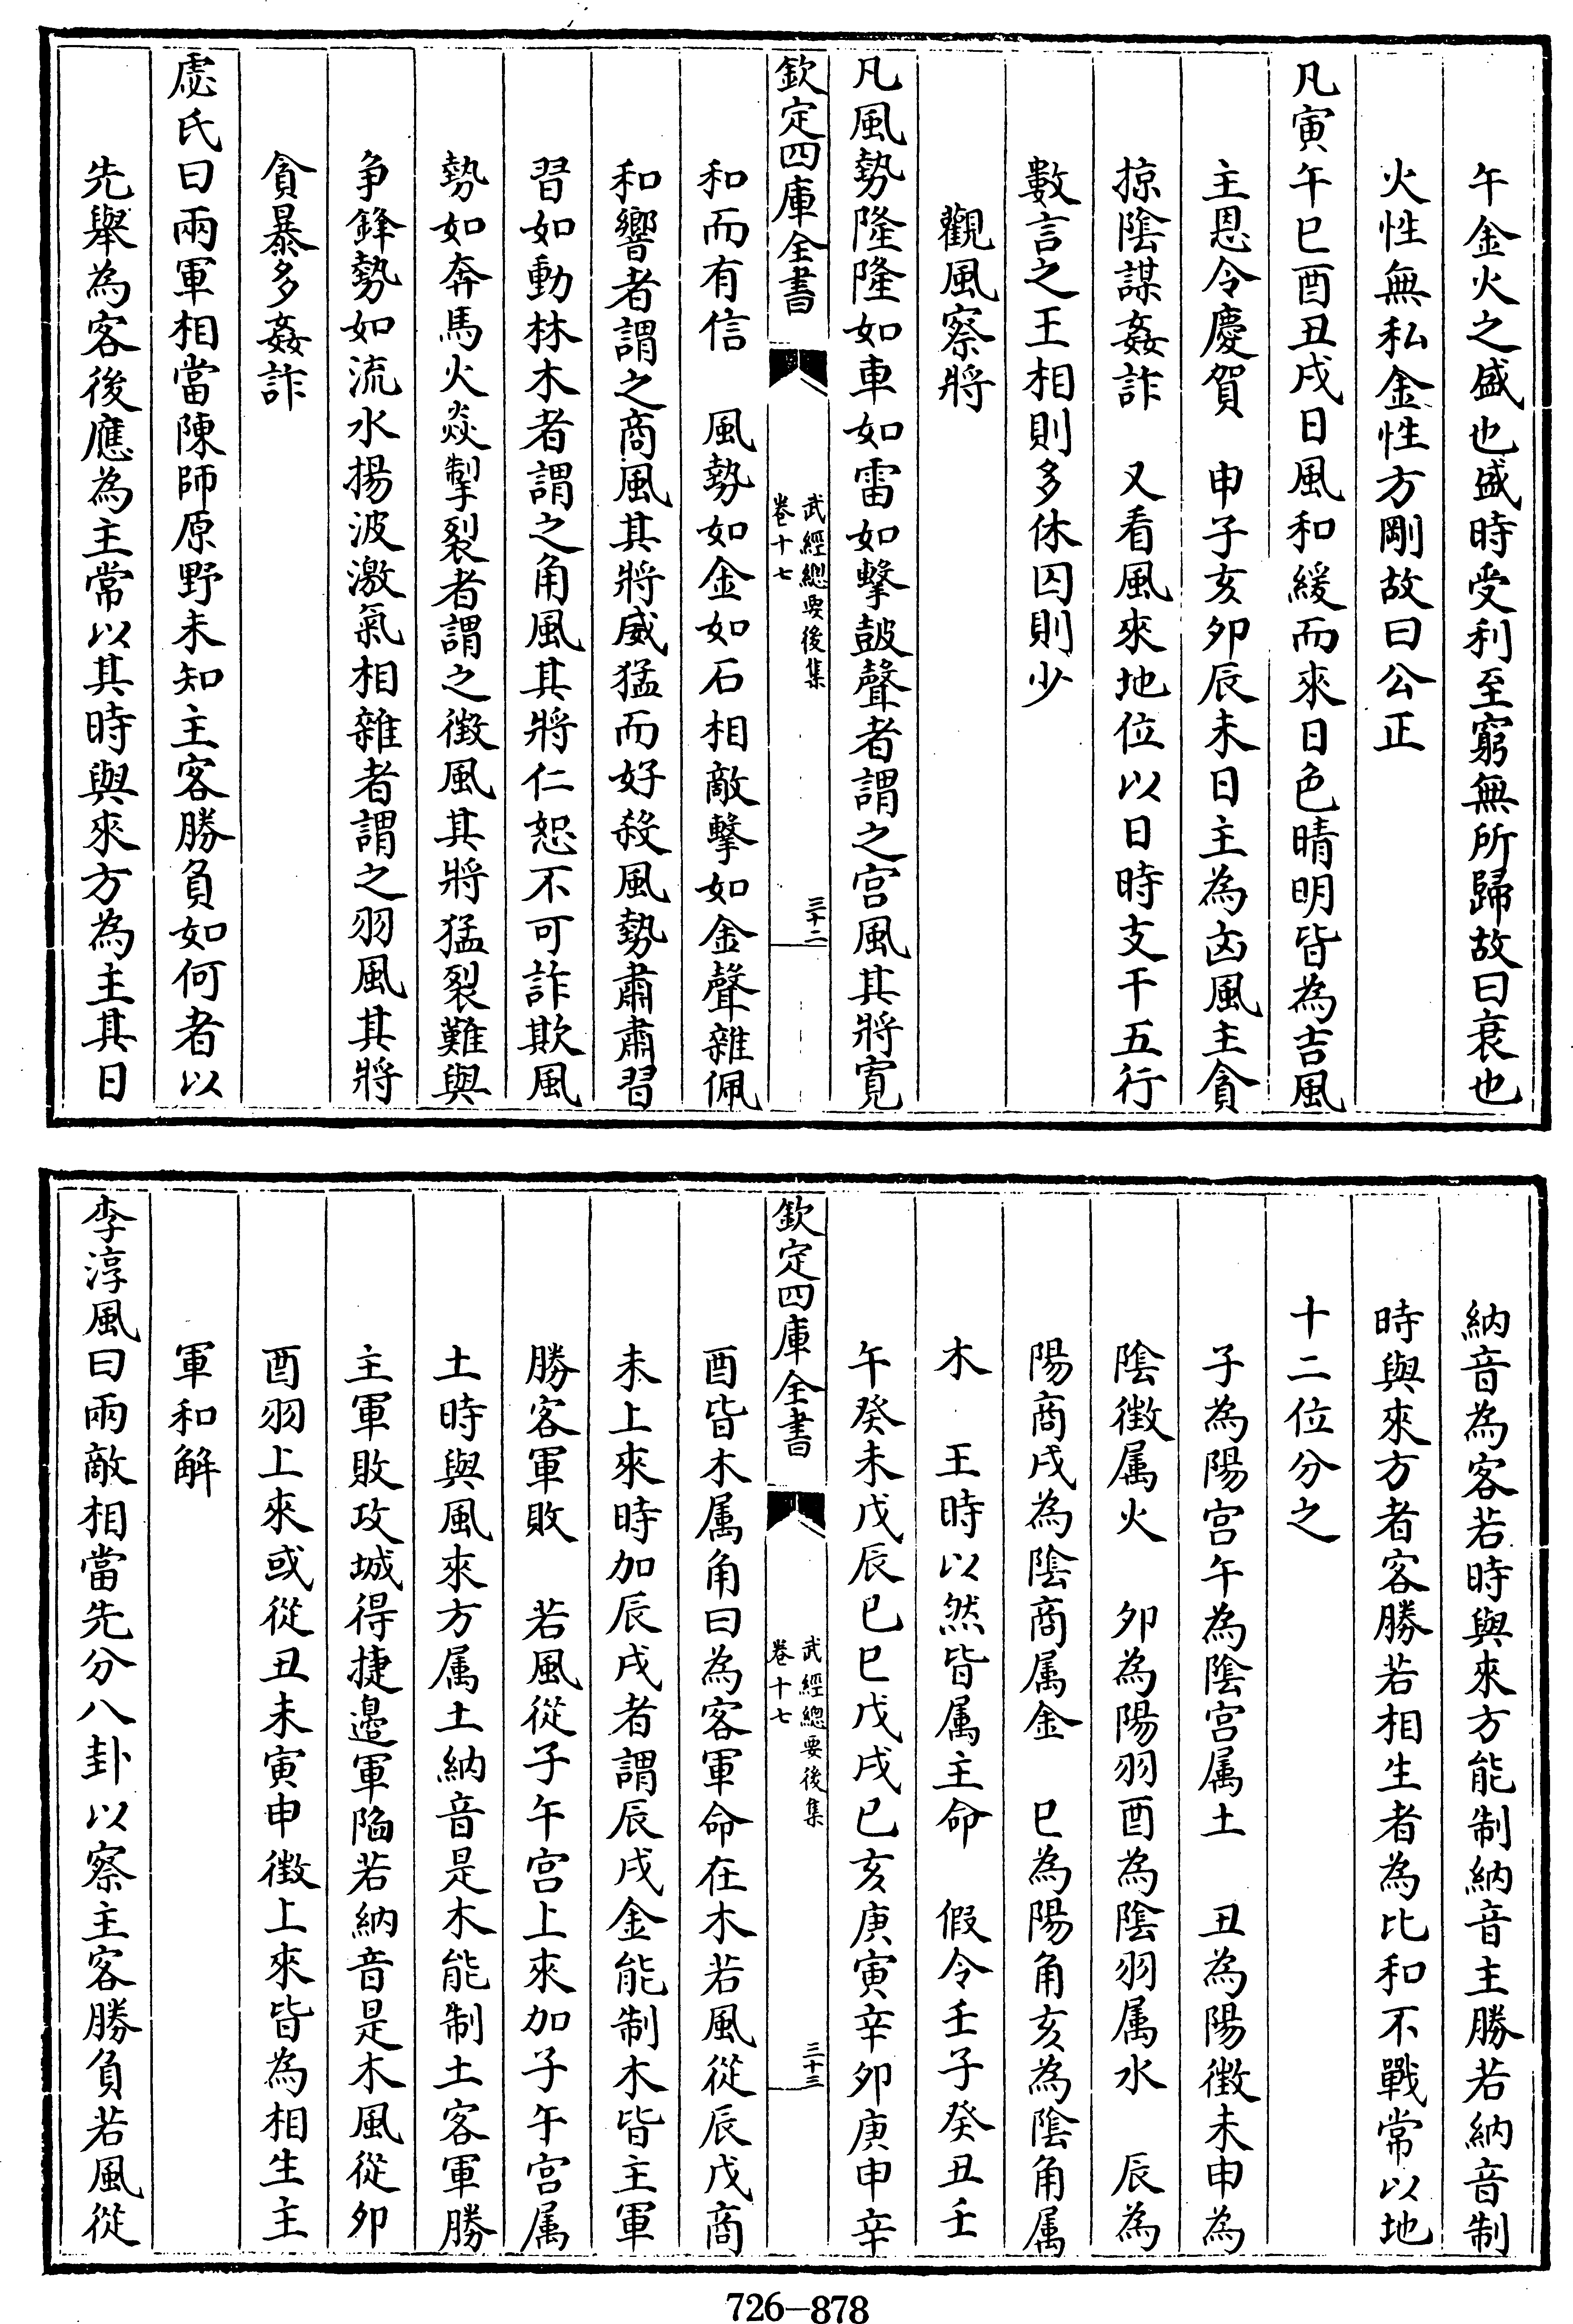 午金火之盛也盛時受利至窮無所歸故曰衰也
火性無私金性方剛故曰公正
凡寅午巳酉丑戌日風和緩而來日色晴明皆為吉風
主恩令慶賀　申子亥卯辰未日主為凶風主貪
掠陰謀姦詐　又看風來地位以日時支干五行
數言之王相則多休囚則少
觀風察將
凡風勢隆隆如車如雷如擊鼓聲者謂之宮風其將寬
欽定四庫全書
武經總要後集
卷十七
三十二
和而有信　風勢如金如石相敵擊如金聲雜佩
和響者謂之商風其將威猛而好殺風勢肅肅習
習如動林木者謂之角風其將仁恕不可詐欺風
勢如奔馬火焱掣裂者謂之徵風其將猛裂難與
争鋒勢如流水揚波激氣相雜者謂之羽風其將
貪暴多姦詐
虙氏曰兩軍相當陳師原野未知主客勝負如何者以
先舉為客後應為主常以其時與來方為主其日
納音為客若時與來方能制納音主勝若納音制
時與來方者客勝若相生者為比和不戰常以地
十二位分之
子為陽宮午為陰宮属土　丑為陽徵未申為
陰徵属火　卯為陽羽酉為陰羽属水　辰為
陽商戌為陰商属金　巳為陽角亥為陰角属
木　王時以然皆属主命　假令壬子癸丑壬
午癸未戊辰巳巳戊戌巳亥庚寅辛卯庚申辛
欽定四庫全書
武經總要後集
卷十七
三十三
酉皆木属角曰為客軍命在木若風從辰戊商
未上來時加辰戌者謂辰戌金能制木皆主軍
勝客軍敗　若風從子午宮上來加子午宮属
土時與風來方属土納音是木能制土客軍勝
主軍敗攻城得捷邊軍陷若納音是木風從卯
酉羽上來或從丑未寅申徵上來皆為相生主
軍和解
李淳風曰兩敵相當先分八卦以察主客勝負若風從
726—878